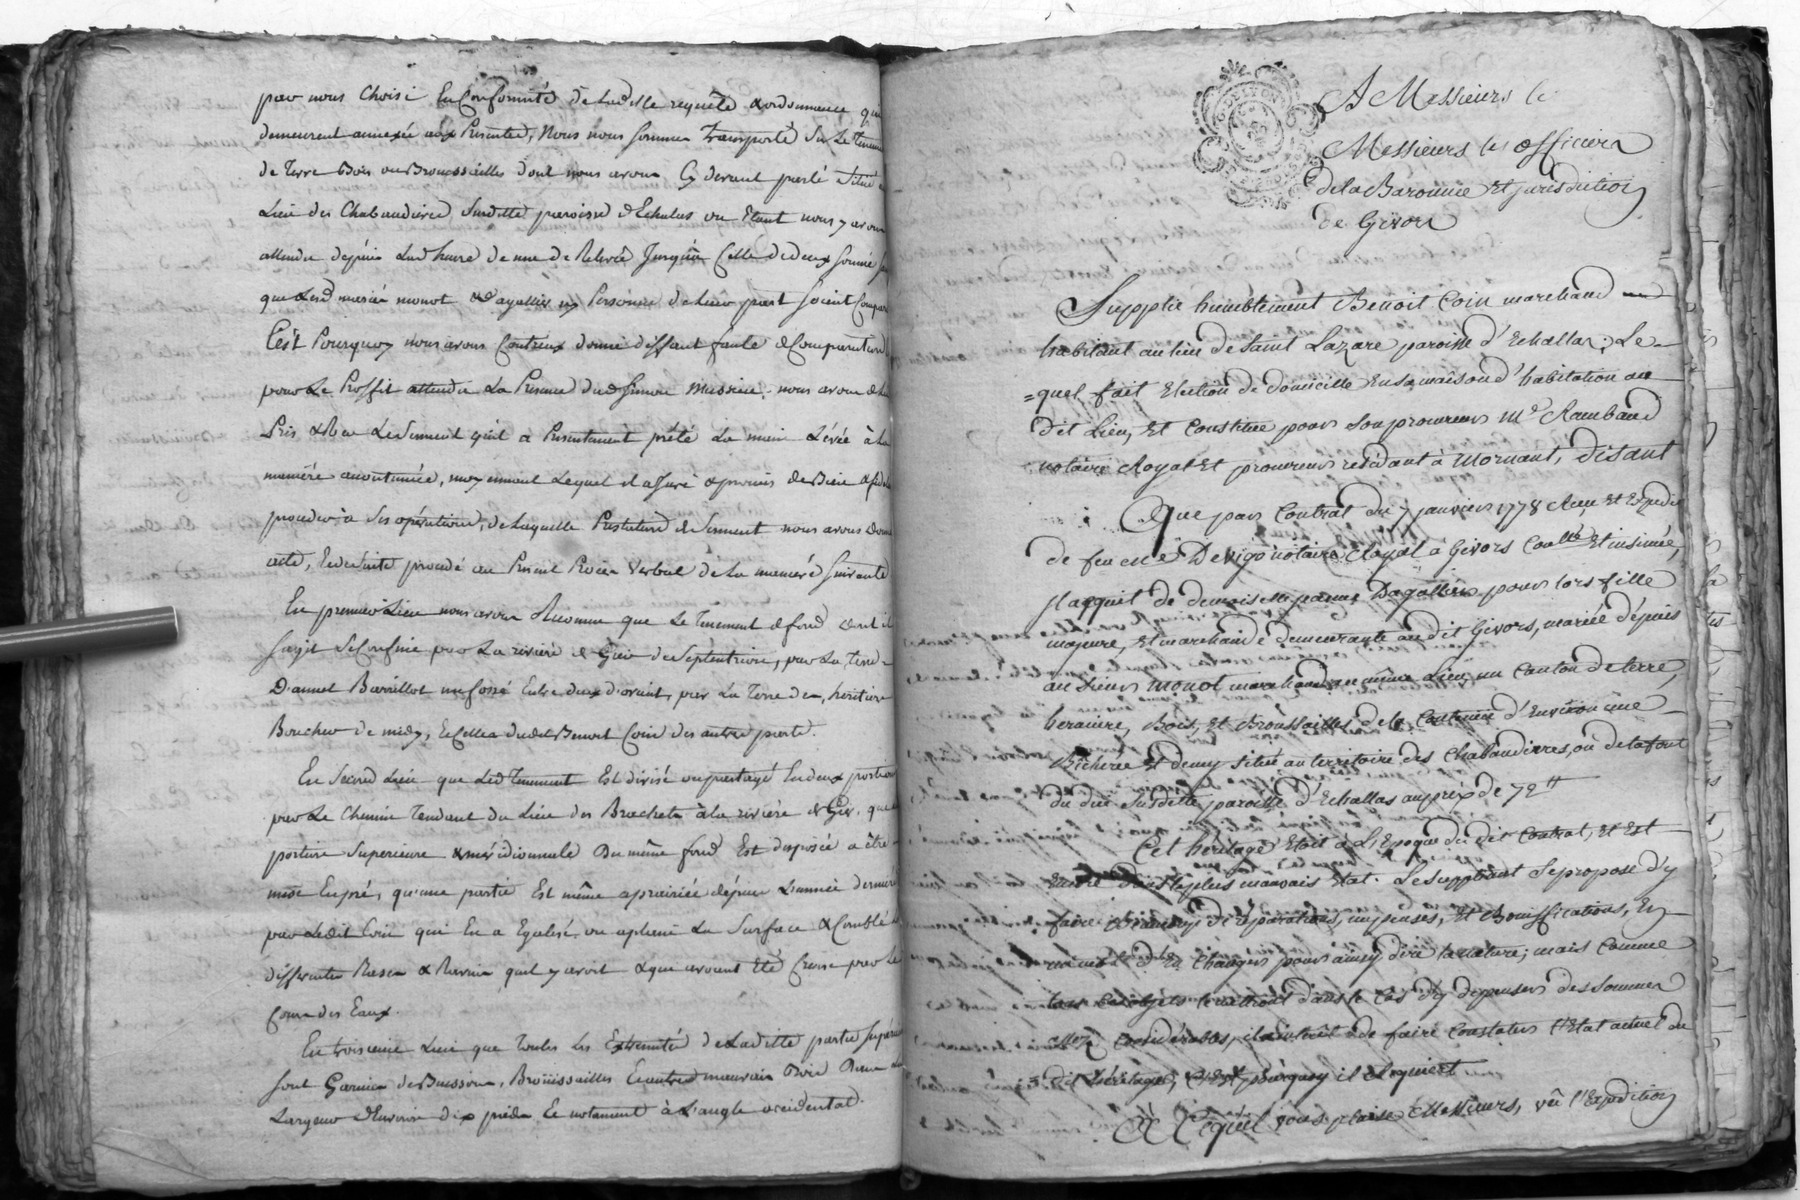 par nous Choisi En Conformité de Laditte requête & ordonnance qui
demeurent annexée aux Presentes, Nous nous sommes transporté sur Le tenement
de Terre Bois ou Broussailles dont nous avons Cy devant parlé Situé
Lieu des Chabaudieres, Susditte paroisse d'Echalas ou Etant nous y avons
attendu depuis Lad heure de une de Relevée Jusqu'à Celle de deux sonnée
que Lesd mariés monot & Dagallier ny Personne de Leur part soient Comparu
C'est Pourquoy nous avons Contreux donné deffaut faute de Comparution
pour Le Proffit attendu La Presence dud Simon Mussieu, nous avons de lui
Pris & Recu Le Serment qu'il a Presentement prêté La main Levée à La
maniére acoutumée, moyennant Lequel il a Juré & promis de Bien & fidel
proceder à Ses opérations, de Laquelle Prestation de Serment nous avons donné
acte, Ensuitte procedé au Present Procès Verbal de La maniere Suivante
En premier Lieu nous avons Reconnu que Le Tenement de fond dont il
Sagit Se Confine par La riviere de Gier de Septentrion, par La Terre
D'annet Barrillot un fossé Entre deux d'orient, par La Terre des heritiers
Boucher de midy, Et Celles dudit Benoit Coin des autres parts.
En Second Lieu que Led Tenement Est divisé ou partagé En deux portions
par Le Chemin Tendant du Lieu des Brachets à la riviére de Gier. que
portion Superieure & meridionnale Du même fond Est disposée a être
mise En pré, qu'une partie Est même aprairiée depuis L'année derniere
par Ledit Coin qui En a Egalisé ou aplani La Surface & Comblé
differentes Rases & Ravins quil y avoit & que avoient Eté Creusé par Le
Cours des Eaux.
En troisieme Lieu que Toutes Les Extremités de Laditte partie Supérieure
Sont Garnies de Buissons, Broüissailles Et autres mauvais Bois Dans
Largeur d'Environ dix pieds Et notament à L'angle occidental.
A Messieurs le
Messieurs les officiers
de la Baronnie Et jurisdiction
de Givors
Supplie humblement Benoit Coin marchand
habitant au lieu de Saint Lazare paroisse d'Echallas; Le-
=quel fait Election de domicille En sa maison d'habitation au
dit Lieu, Et Constitue pour Son procureur Me Rambaud
notaire Royal Et procureur residant à Mornant, disant
Que par Contrat du 7 janvier 1778 Recu Et Expedié
de feu Me Devigo notaire Royal à Givors Conllé Et insinué,
Il acquit de demoiselle jeanne Dagallier pour lors fille
majeure, Et marchande demeurante au dit Givors, mariée dépuis
au Sieur Monot marchand au même Lieu, un Canton de terre,
heraviere, Bois, Et Broussailles de la Contenue d'Environ une
Bicherée Et demy Situé au territoire des Chabaudieres, ou de la font
du duc Susditte paroisse d'Echallas au prix de 72 tt
Cet heritage Etoit à L'Epoque du dit Contrat, Et Est
Encore dans le plus mauvais Etat. Le Suppliant Se propose d'y
faire Beaucoup de réparations, impenses, Et Bonniffications, Et
même d'En Changer pour ainsy dire la nature; mais Comme
tous Ces objets le mettront dans le Cas d'y depenser des Sommes
assez Considérables, il a intérêt de faire Constater l'Etat actuel du
= dit heritage, C'Est pourquoy il Requiert
A Ce qu'il vous plaise Messieurs, vû l'Expedition